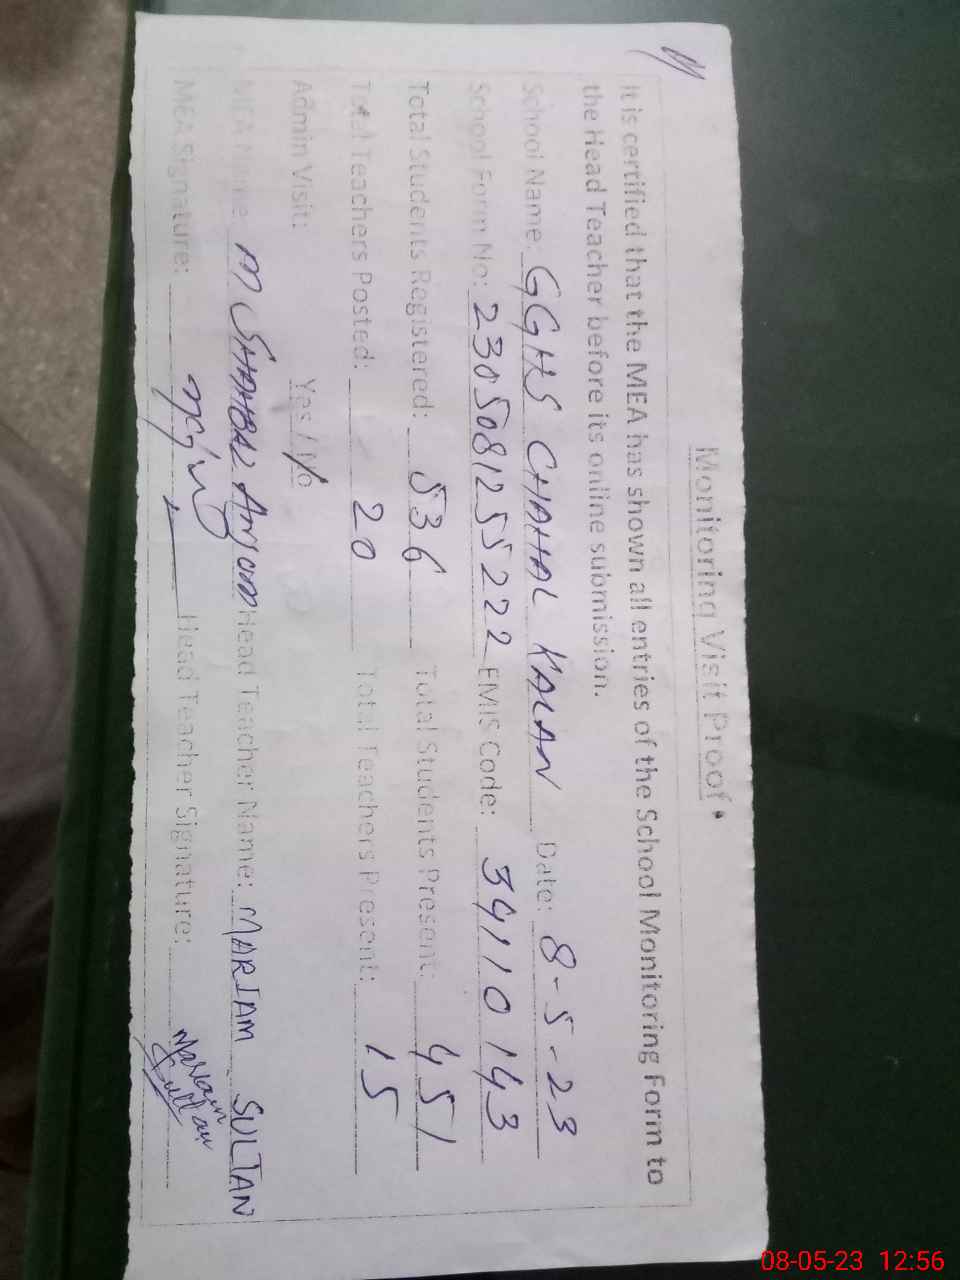 Monitoring Visit Proof
It is certified that the MEA has shown all entries of the School Monitoring Form to
the Head Teacher before its online submission.
School Name: GGHS CHAHAL KALAN Date: 8-5-23
School Form No: 2305081255222 EMIS Code: 34110143
Total Students Registered: 536 Total Students Present: 451
Total Teachers Posted: 20 Total Teachers Present: 15
Admin Visit: Yes / No
MEA Name: M SHAHBAZ ANJUM Head Teacher Name: MARIAM SULTAN
MEA Signature: Head Teacher Signature: Mariam Sultan
08-05-23 12:56